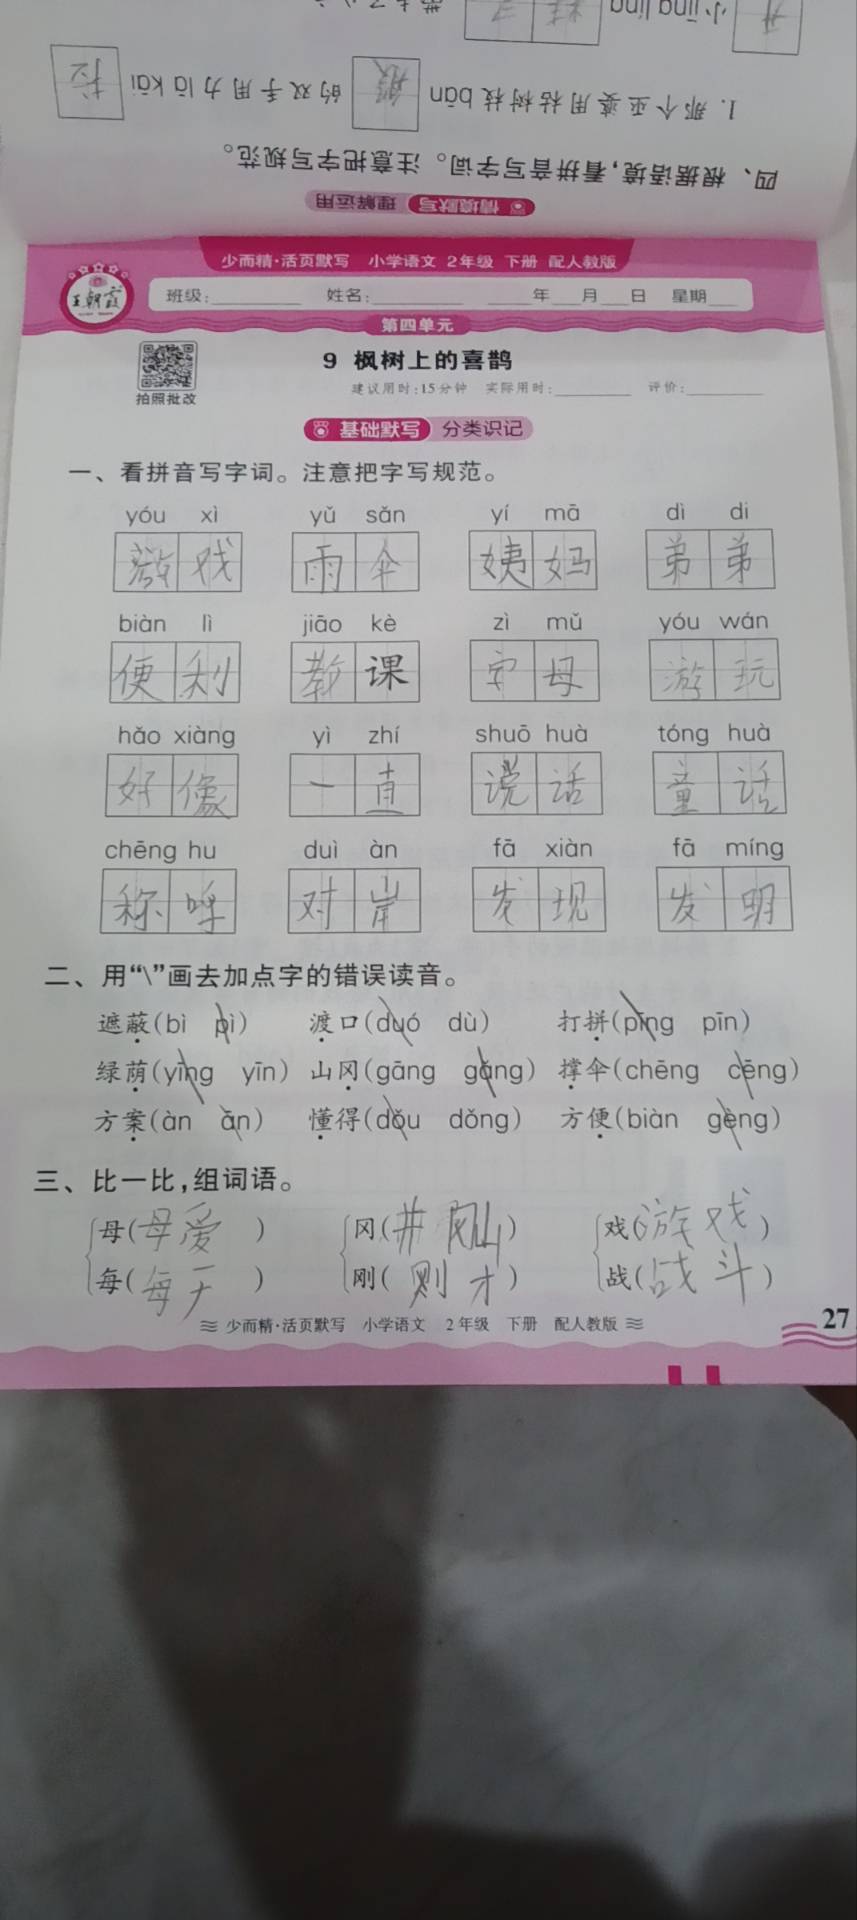 小 jīng líng
1. 那个巫婆用枯树枝 bān 般 的双手用力 lā kāi 拉
四、根据语境，看拼音写字词。注意把字写规范。
情境默写 理解运用
少而精·活页默写 小学语文 2年级 下册 配人教版
王朝霞 班级： 姓名： 年 月 日 星期
第四单元
9 枫树上的喜鹊
拍照批改 建议用时：15分钟 实际用时： 评价：
基础默写 分类识记
一、看拼音写字词。注意把字写规范。
yóu xì yǔ sǎn yí mā dì di
戏 雨伞 姨妈 弟弟
biàn lì jiāo kè zì mǔ yóu wán
便利 教课 字母 游玩
hǎo xiàng yì zhí shuō huà tóng huà
好像 一直 说话 童话
chēng hu duì àn fā xiàn fā míng
称呼 对岸 发现 发明
二、用“\”画去加点字的错误读音。
遮蔽(bì pì) 渡口(duó dù) 打拼(pīng pīn)
绿荫(yīng yīn) 山冈(gāng gǎng) 撑伞(chēng cēng)
方案(àn ān) 懂得(dǒu dǒng) 方便(biàn gèng)
三、比一比，组词语。
母(母爱) 冈(井冈山) 戏(游戏)
每(每天) 刚(刚才) 战(战斗)
少而精·活页默写 小学语文 2年级 下册 配人教版
27